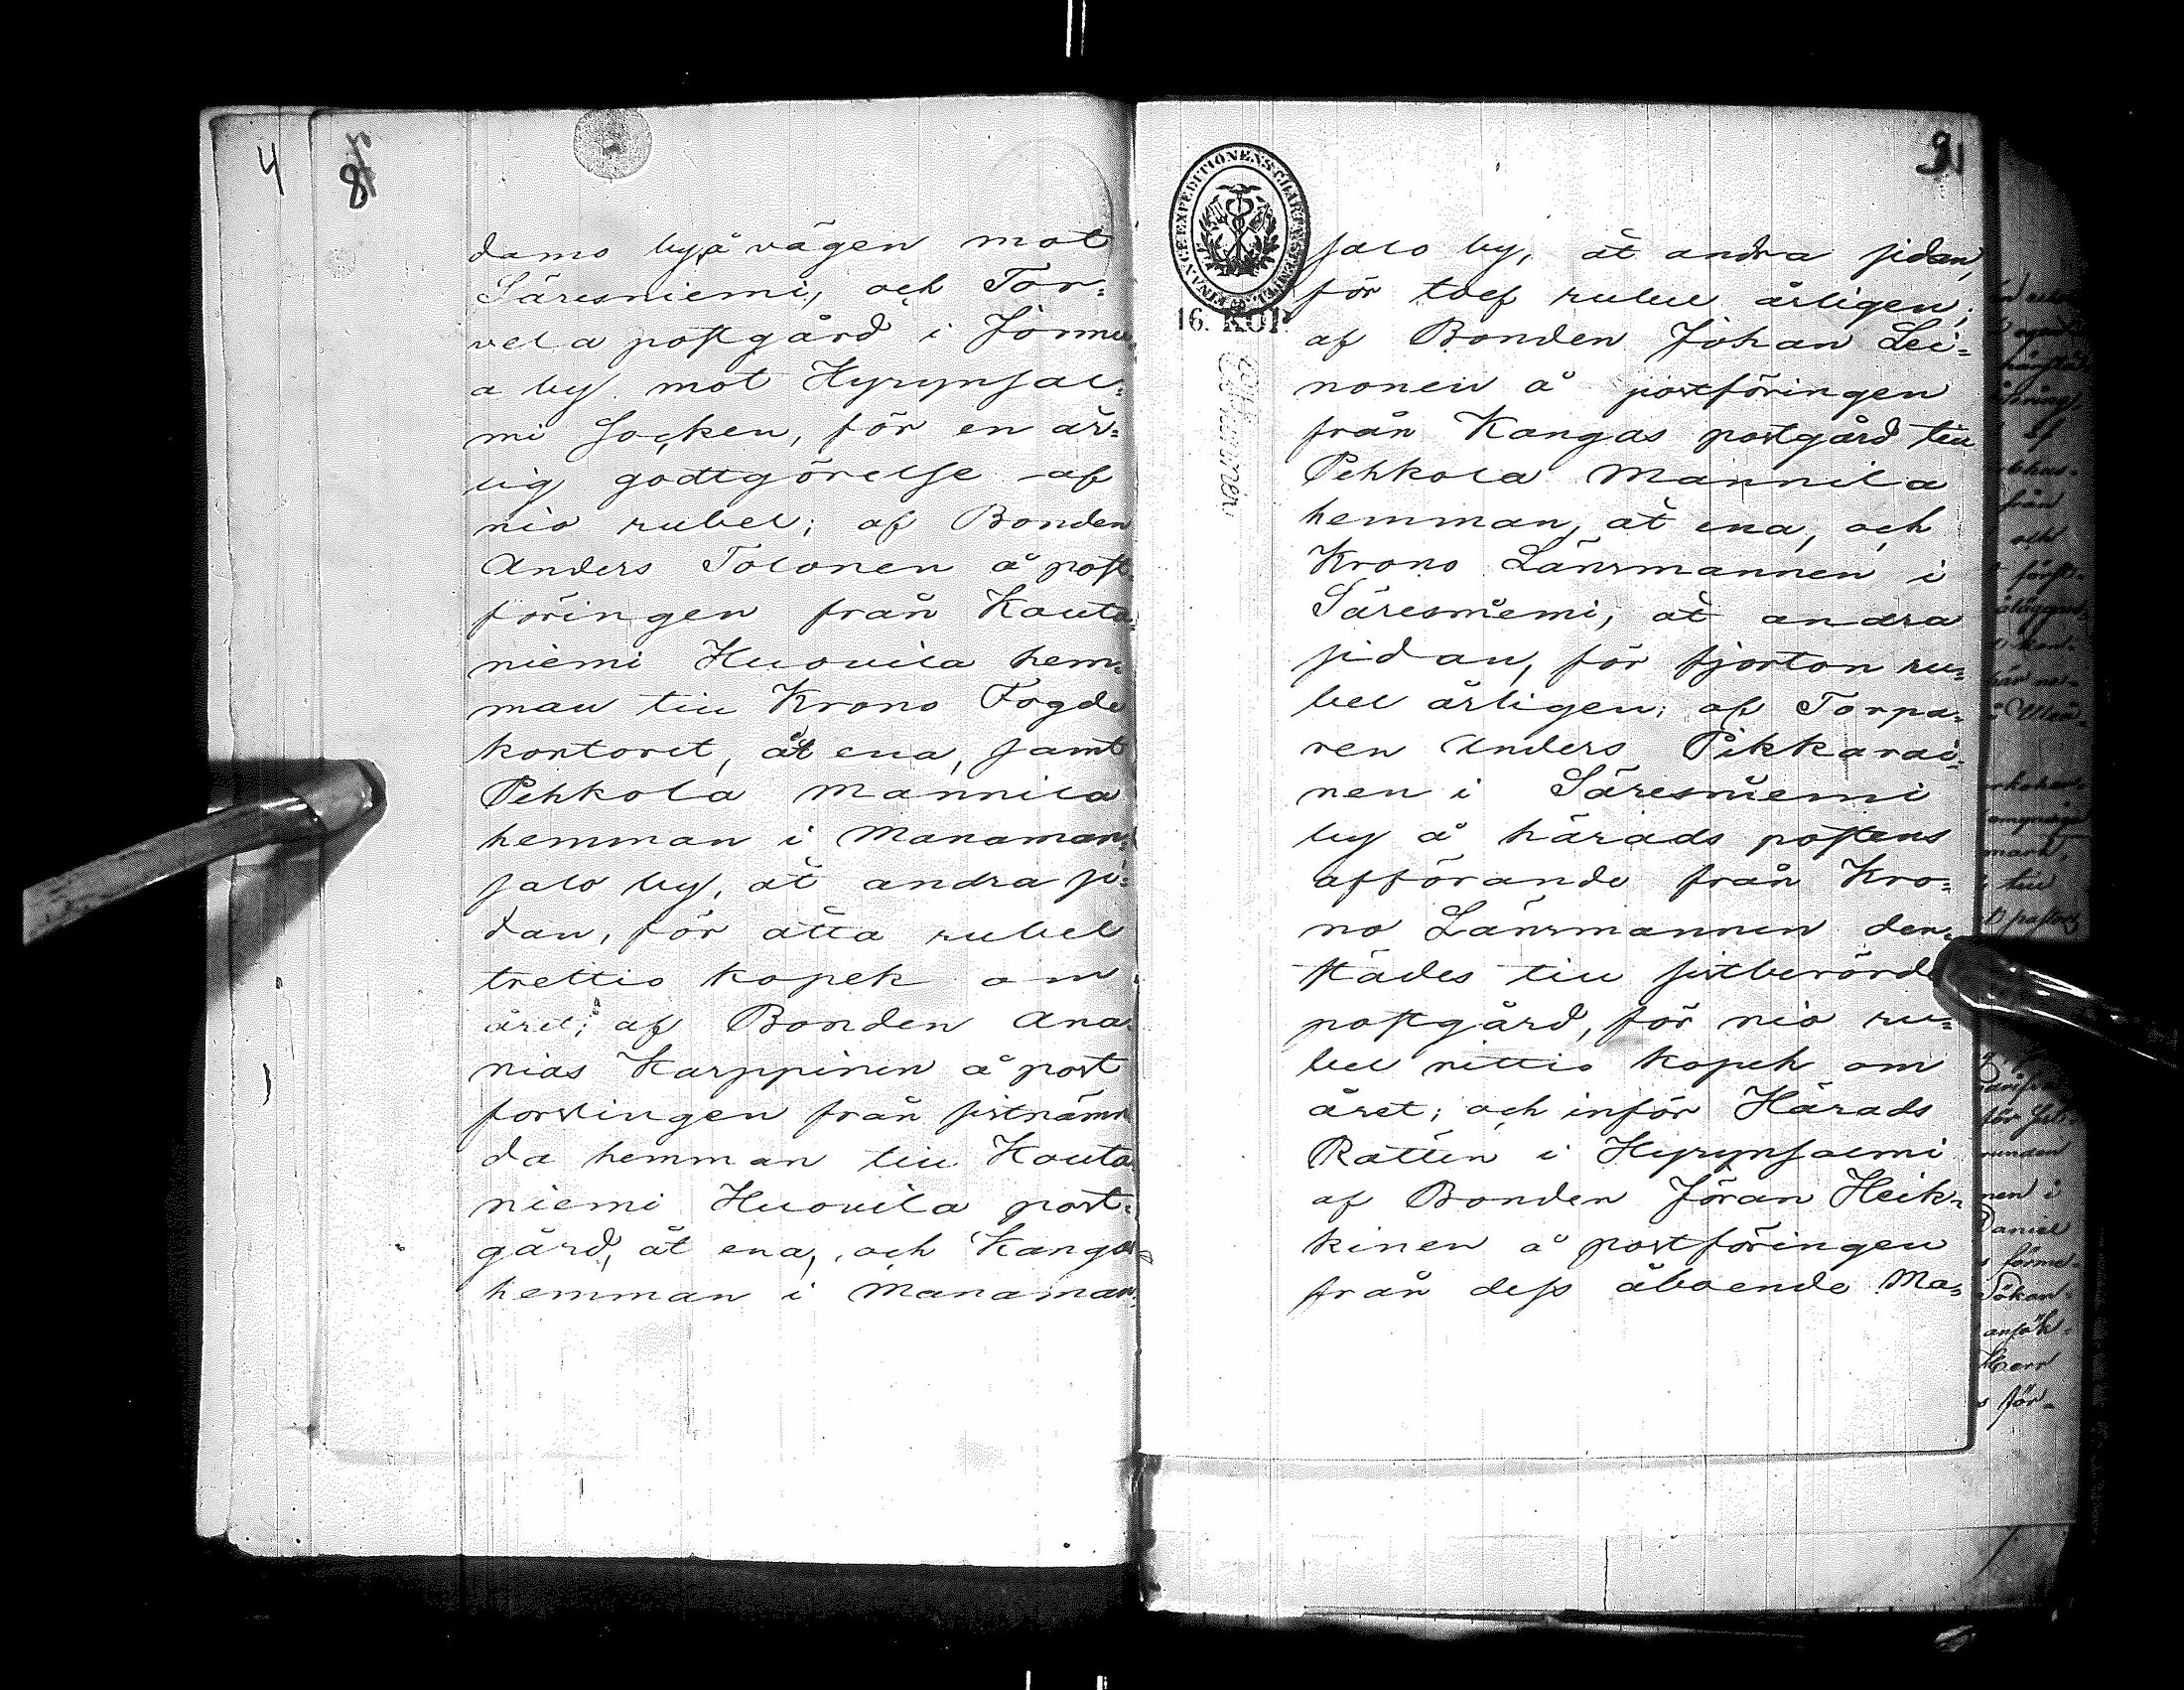 4
8
damo by, å vägen mot
Säresniemi, och Tor-
vela postgård i Jormu-
a by mot Hyrynsal-
mi Socken, för en är-
lig godtgörelse af
nio rubel; af Bonden
Anders Tolonen å post-
föringen från Kouta-
niemi Huovila hem-
man till Krono Fogde
kontoret, åt ena, samt
Pehkola Mannila
hemman i Manaman-
salo by, åt andra si-
dan, för åtta rubel
trettio kopek om
året; af Bonden Ana-
nias Karppinen å post
forslingen från sistnämn
da hemman till Kouta-
niemi Huovila post-
gård, åt ena, och Kangas
hemman i Manaman-
9
FINANCE EXPEDITIONENS CHARTÆ STEMPEL
16. KOP.
salo by, åt andra sidan,
för tolf rubel årligen;
af Bonden Johan Lei-
nonen å postföringen
från Kangas postgård till
Pehkola Mannila
hemman, åt ena, och
Krono Länsmannen i
Säresniemi, åt andra
sidan, för fjorton ru-
bel årligen; af Torpa-
ren Anders Pikkarai-
nen i Säresniemi
by å härads postens
afförande från Kro-
no Länsmannen der-
städes till sistberörde
postgård, för nio ru-
bel nittio kopek om
året; och inför Härads
Rätten i Hyrynsalmi
af Bonden Jöran Heik-
kinen å postföringen
från dess åboende Ma-